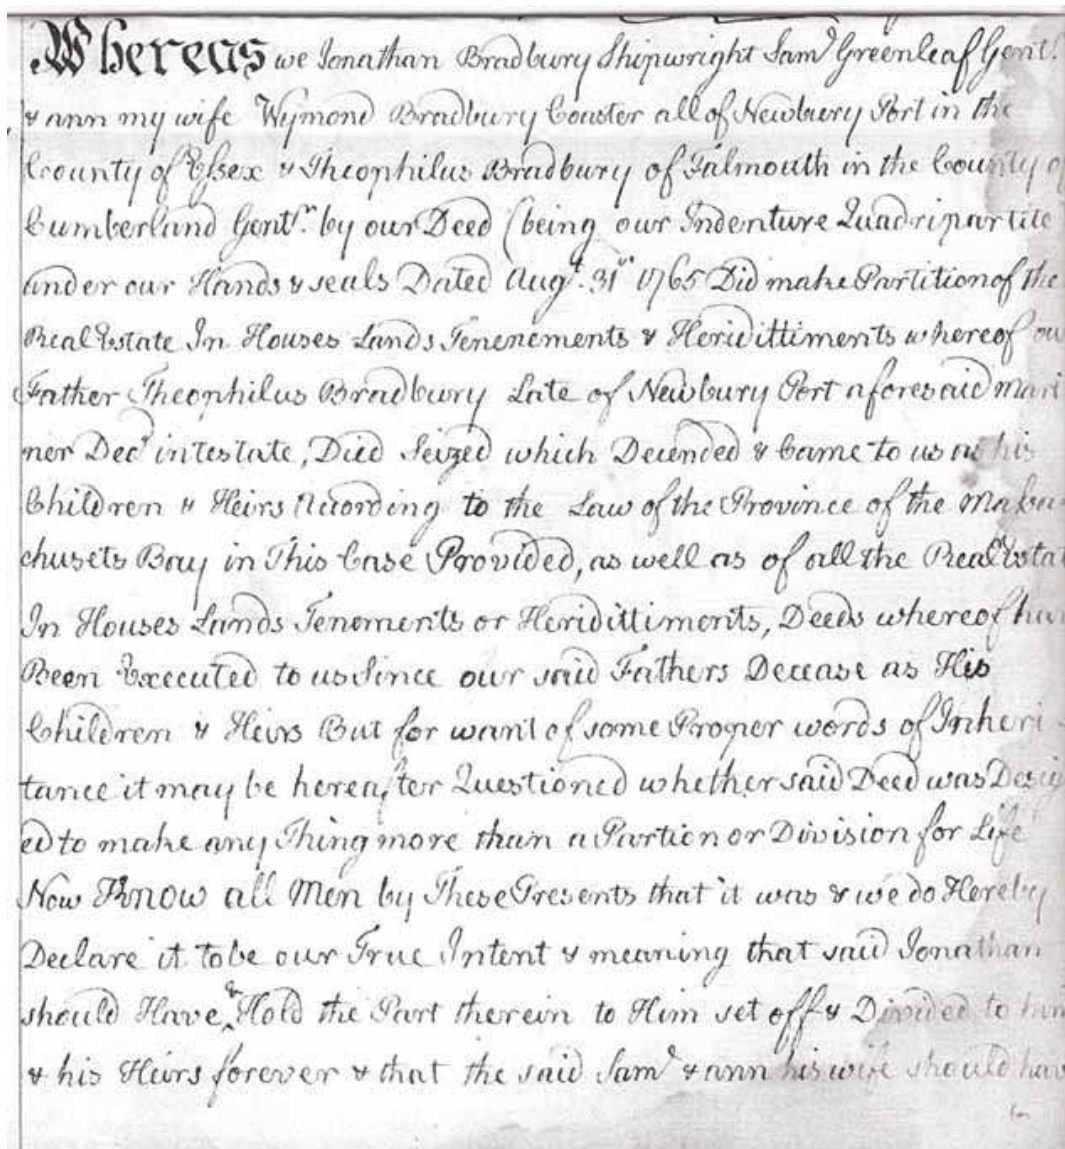 Whereas we Jonathan Bradbury Shipwright Samˡ Greenleaf Gentⁿ
& ann my wife Wymond Bradbury Coaster all of Newbury Port in the
County of Essex & Theophilus Bradbury of Falmouth in the County of
Cumberland Gentⁿ. by our Deed (being our Indenture Quadripartite
under our Hands & seals Dated Augᵗ. 31ˢᵗ 1765 Did make Partition of the
Real Estate In Houses Lands Tenenements & Heridittiments whereof ou
Father Theophilus Bradbury Late of Newbury Port aforesaid Mari
ner Decᵈ intestate, Died Seized which Decended & Came to us as his
Children & Heirs According to the Law of the Province of the Massa
chusets Bay in This Case Provided, as well as of all the Real Estat
In Houses Lands Tenements or Heridittiments, Deeds whereof hav
Been Executed to us Since our said Fathers Decease as His
Children & Heirs But for want of some Proper words of Inheri-
tance it may be hereafter Questioned whether said Deed was Desig
ed to make any Thing more than a Partion or Division for Life
Now Know all Men by These Presents that it was & we do Hereby
Declare it to be our True Intent & meaning that said Jonathan
should Have & Hold the Part therein to Him set off & Divided to him
& his Heirs forever & that the said Samˡ & ann his wife should hav